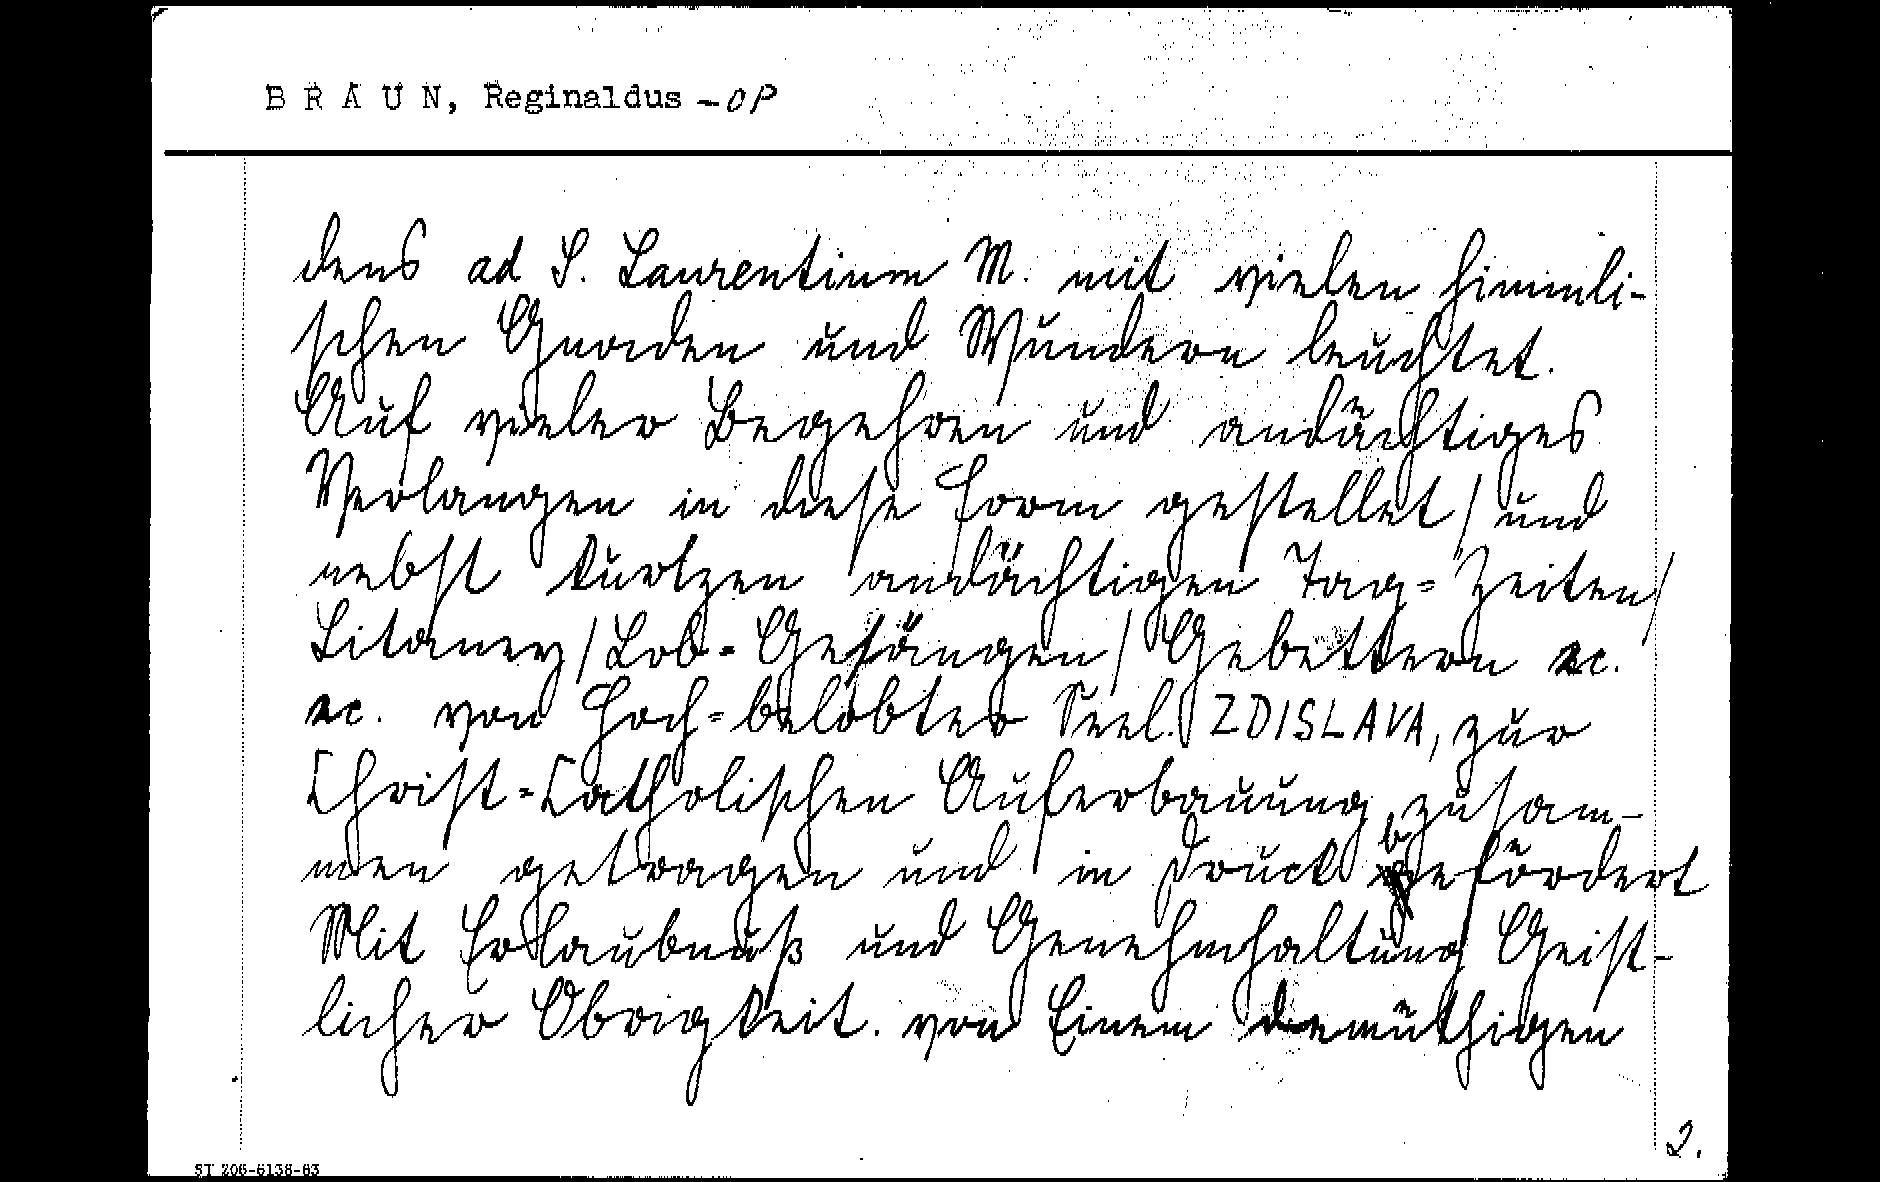 BRAUN, Reginaldus - OP
dens ad S. Laurentium M. mit vielen himmli-
schen Gnaden und Wundern leuchtet.
Auf vieler Begehren und andächtiges
Verlangen in diese Form gestellet / und
nebst kurtzen andächtigen Tag= Zeiten /
Litaney / Lob= Gesängen / Gebettern ꝛc.
ꝛc. von Hoch=belobter Seel. ZDISLAVA, zur
Christ=Catholischen Auferbauung zusam-
men getragen und in Druck befördert
Mit Erlaubnuß und Genehmhaltung Geist-
licher Obrigkeit. von Einem demüthigen
2.
ST 206-6138-83